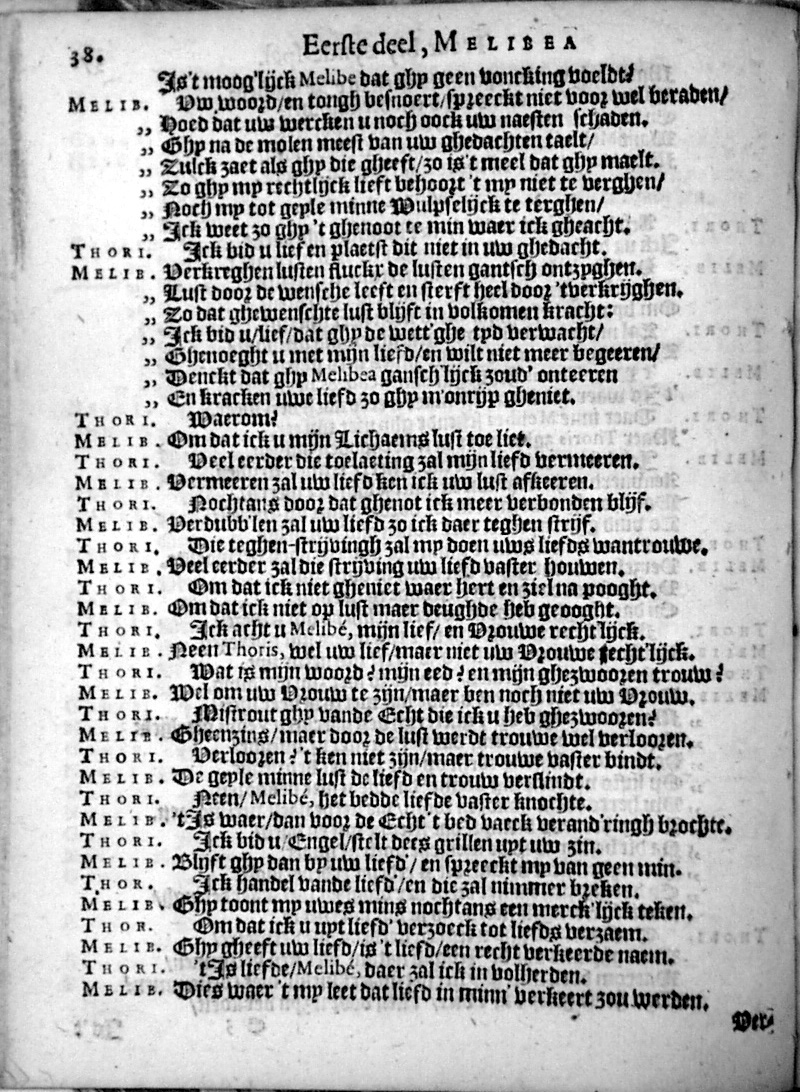 38. Eerste deel, MELIBEA
Is't moog'lijck Melibe dat ghy geen voncking voeldt?
MELIB. Uw woord/en tongh besnoert/spreeckt niet voor wel beraden/
„ Hoed dat uw wercken u noch oock uw naesten schaden.
„ Ghy na de molen meest van uw ghedachten taelt/
„ Zulck zaet als ghy die gheeft/zo is't meel dat ghy maelt.
„ Zo ghy my rechtlijck lieft behoort 't my niet te verghen/
„ Noch my tot geyle minne Wulpselijck te terghen/
„ Ick weet zo ghy 't ghenoot te min waer ick gheacht.
THORI. Ick bid u lief en plaetst dit niet in uw ghedacht.
MELIB. Verkreghen lusten fluckx de lusten gantsch ontzyghen.
„ Lust door de wensche leeft en sterft heel door 'tverkrijghen.
„ Zo dat ghewenschte lust blijft in volkomen kracht:
„ Ick bid u/lief/dat ghy de wett'ghe tyd verwacht/
„ Ghenoeght u met mijn liefd/en wilt niet meer begeeren/
„ Denckt dat ghy Melibea gansch'lijck zoud' onteeren
„ En kracken uwe liefd zo ghy m'onrijp gheniet.
THORI. Waerom?
MELIB. Om dat ick u mijn Lichaems lust toe liet.
THORI. Veel eerder die toelaeting zal mijn liefd vermeeren.
MELIB. Vermeeren zal uw liefd ken ick uw lust afkeeren.
THORI. Nochtans door dat ghenot ick meer verbonden blijf.
MELIB. Verdubb'len zal uw liefd zo ick daer teghen strijf.
THORI. Die teghen-strijvingh zal my doen uws liefds wantrouwe.
MELIB. Veel eerder zal die strijving uw liefd vaster houwen.
THORI. Om dat ick niet gheniet waer hert en ziel na pooght.
MELIB. Om dat ick niet op lust maer deughde heb geooght.
THORI. Ick acht u Melibé, mijn lief/ en Vrouwe recht'lijck.
MELIB. Neen Thoris, wel uw lief/maer niet uw Vrouwe echt'lijck.
THORI. Wat is mijn woord? mijn eed? en mijn ghezwooren trouw?
MELIB. Wel om uw Vrouw te zijn/maer ben noch niet uw Vrouw.
THORI. Mistrout ghy vande Echt die ick u heb ghezwooren?
MELIB. Gheenzins/maer door de lust werdt trouwe wel verlooren.
THORI. Verlooren? 't ken niet zijn/maer trouwe vaster bindt.
MELIB. De geyle minne lust de liefd en trouw verslindt.
THORI. Neen/Melibé, het bedde liefde vaster knochte.
MELIB. 'tIs waer/dan voor de Echt 't bed vaeck verand'ringh brochte.
THORI. Ick bid u/Engel/stelt dees grillen uyt uw zin.
MELIB. Blyft ghy dan by uw liefd'/en spreeckt my van geen min.
THOR. Ick handel vande liefd'/en die zal nimmer breken.
MELIB. Ghy toont my uwes mins nochtans een merck'lijck teken.
THOR. Om dat ick u uyt liefd' verzoeck tot liefds verzaem.
MELIB. Ghy gheeft uw liefd/is 't liefd/een recht verkeerde naem.
THORI. 'tIs liefde/Melibé, daer zal ick in volherden.
MELIB. Dies waer 't my leet dat liefd in minn' verkeert zou werden.
Ver-